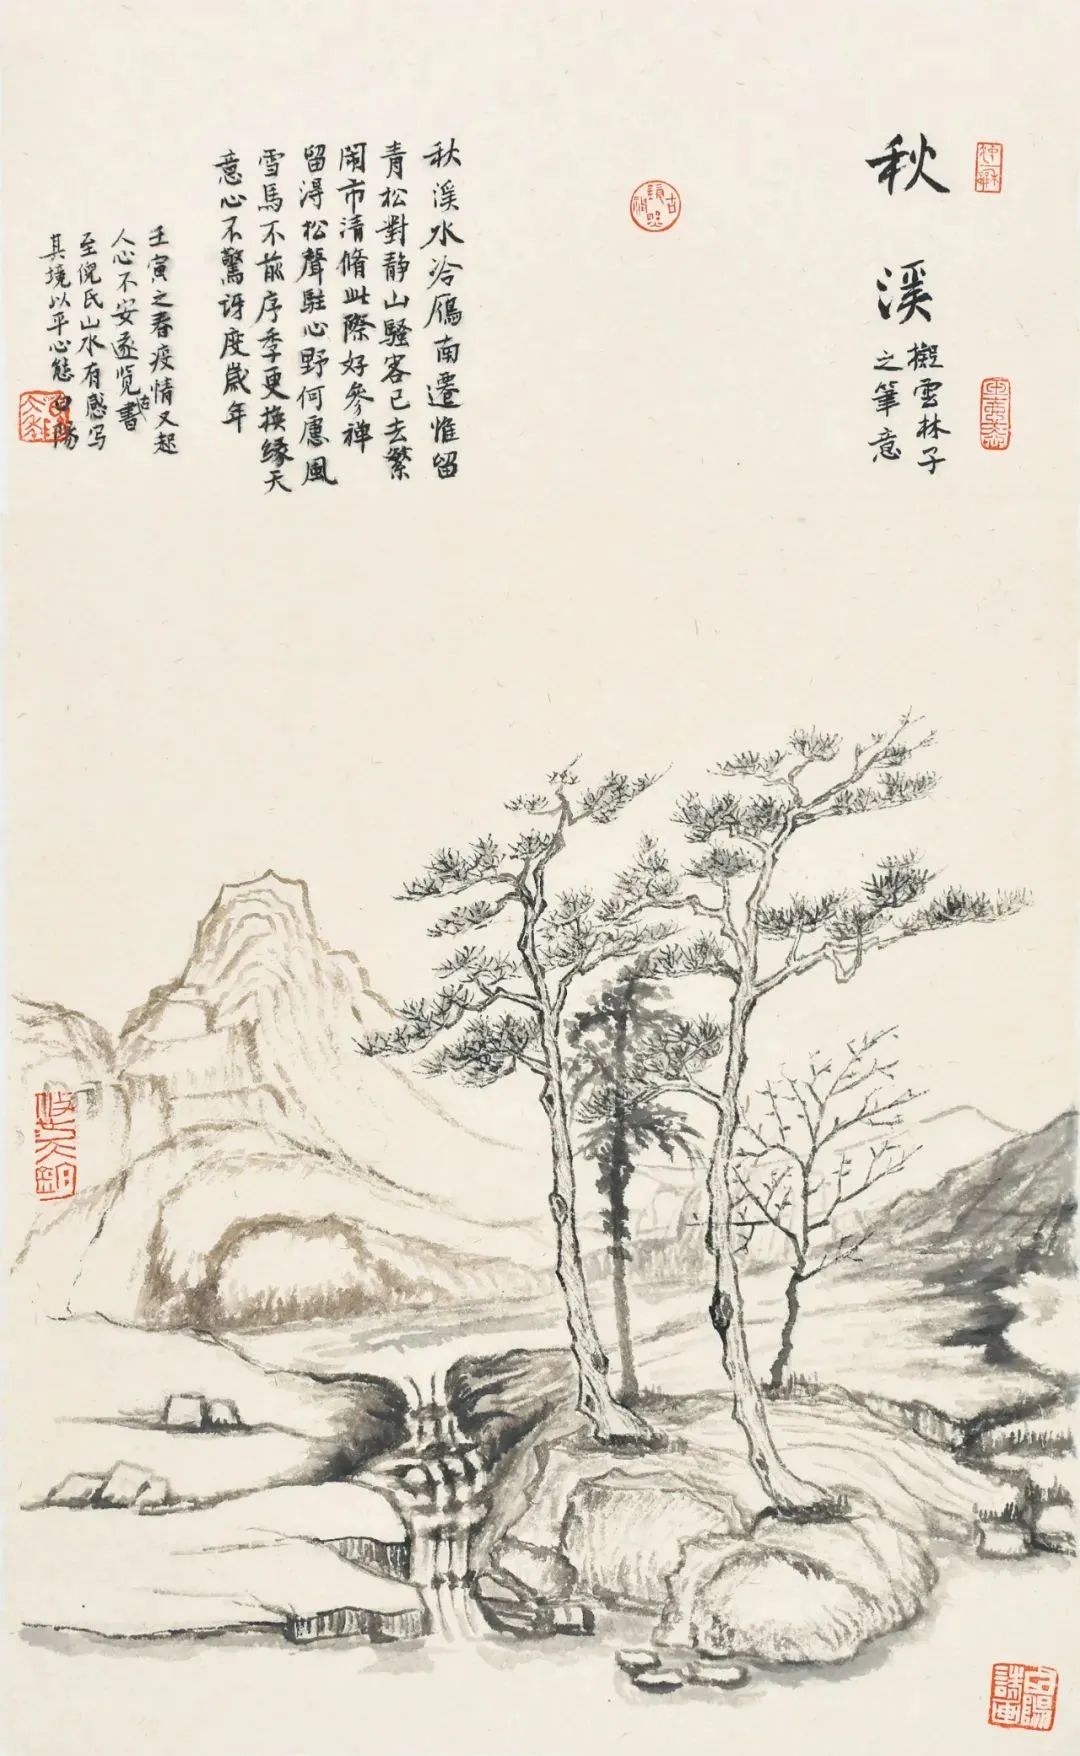 秋溪
擬雲林子
之筆意
秋溪水冷鴈南遷惟留
青松對靜山騷客已去繁
閙市清脩此際好參禪
留得松聲駐心野何慮風
雪馬不前序季更換緣天
意心不驚訝度歲年
壬寅之春疫情又起
人心不安遂览古書
至倪氏山水有感写
其境以平心態 白陽